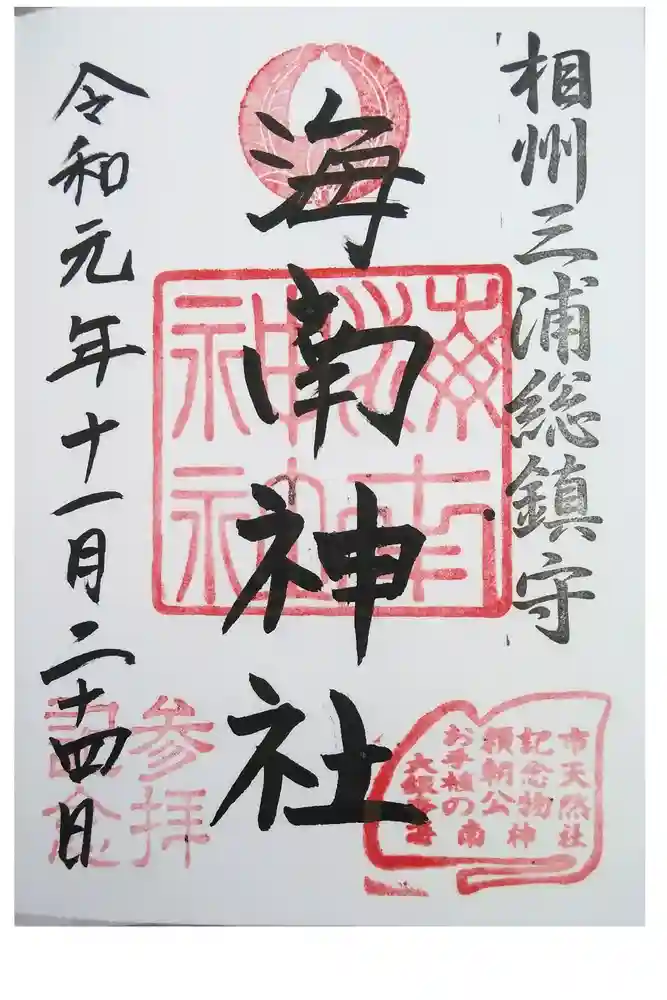 相州三浦総鎮守
海南神社
令和元年十一月二十四日
海南
神社
参拝
記念
市天然
記念物
頼朝公
お手植の
大銀杏
海南神社